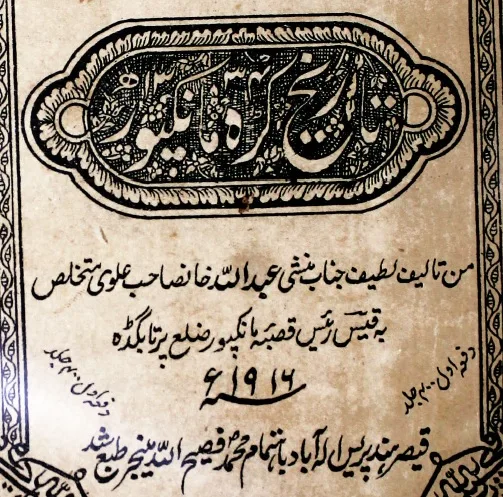 تاریخ کڑہ مانکپور
من تالیف لطیف جناب منشی عبد اللہ خانصاحب علوی متخلص
بہ قیس رئیس قصبہ مانکپور ضلع پرتابگڈہ
۱۹۱۶ء
دفعہ اول ۲۰۰ جلد
دفعہ اول ۲۰۰ جلد
قیصر ہند پریس الہ آباد باہتمام محمد فصیح اللہ مینجر طبع شد